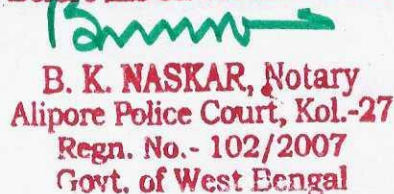 B. K. NASKAR, Notary
Alipore Police Court, Kol.-27
Regn. No.- 102/2007
Govt. of West Bengal